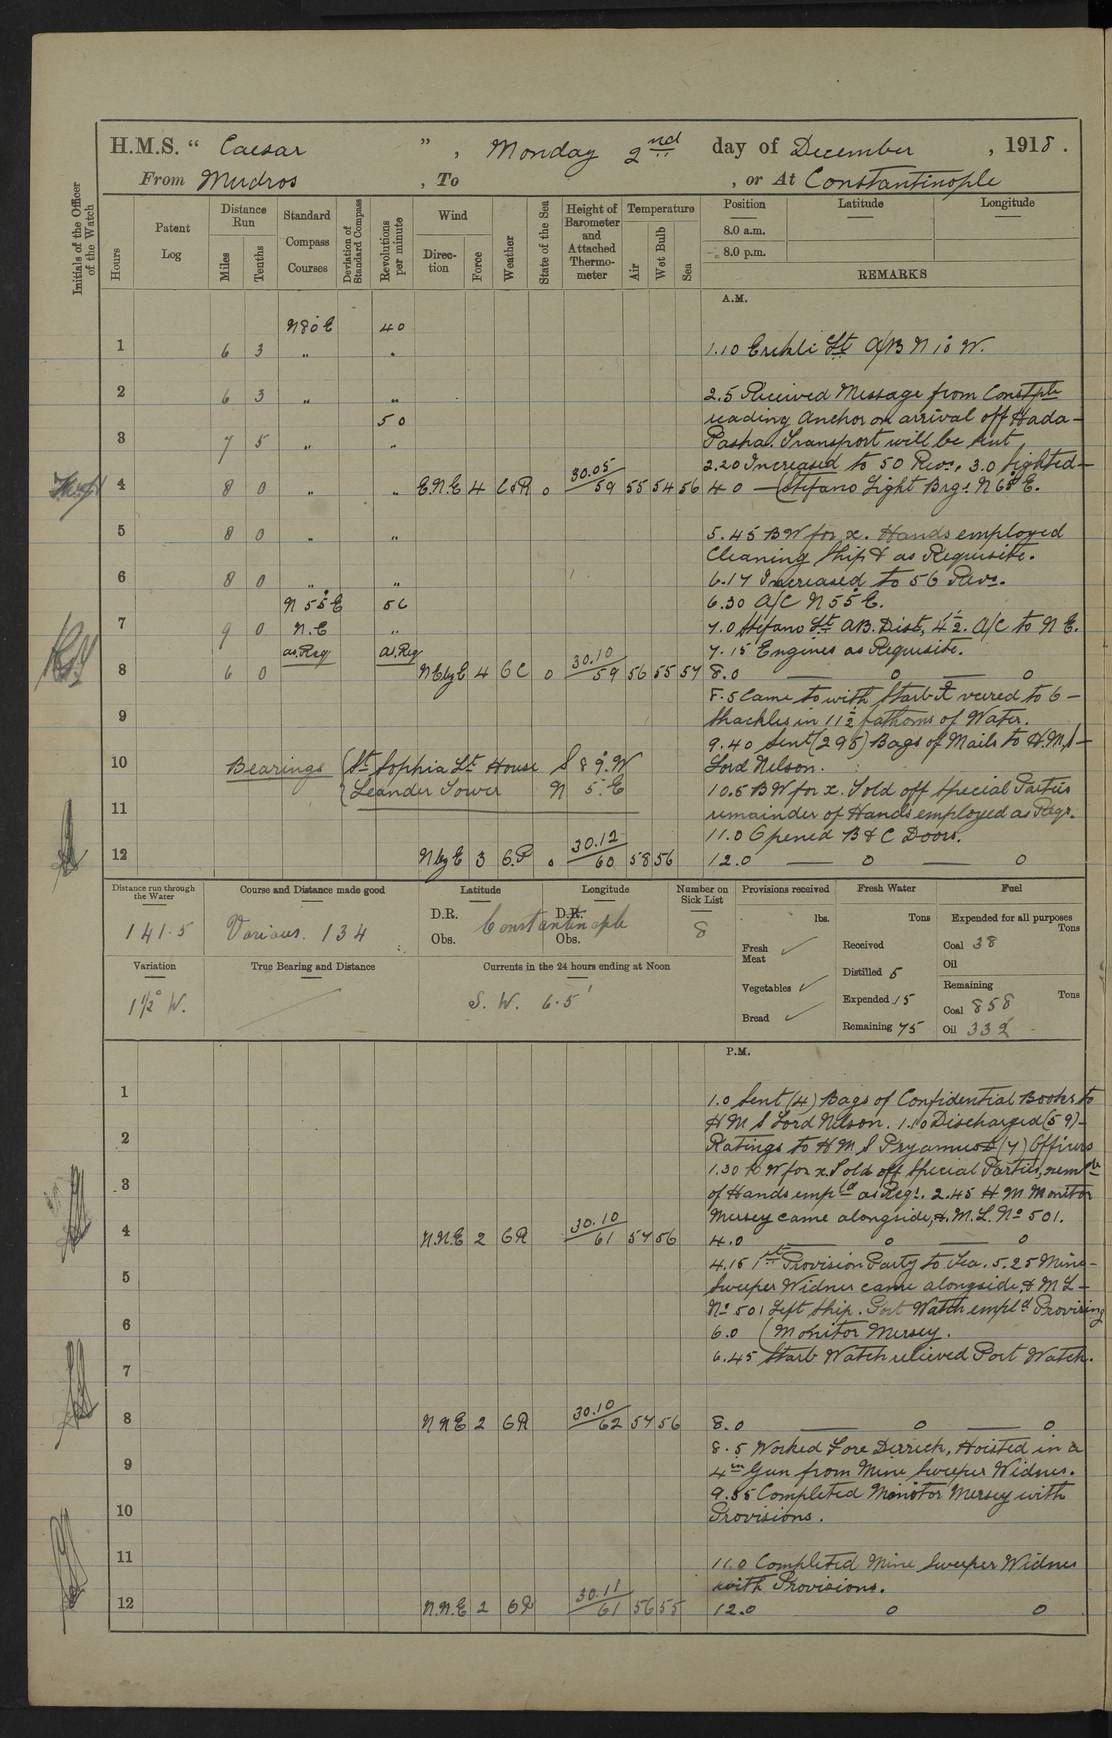 H.M.S. " Caesar ", Monday 2nd day of December, 1918.
From Mudros, To , or At Constantinople
Initials of the Officer of the Watch
Hours
Patent Log
Distance Run
Miles
Tenths
Standard Compass Courses
Deviation of Standard Compass
Revolutions per minute
Wind
Direction
Force
Weather
State of the Sea
Height of Barometer and Attached Thermometer
Temperature
Air
Wet Bulb
Sea
Position
Latitude
Longitude
8.0 a.m.
8.0 p.m.
REMARKS
A.M.
N 80 E 40
1 6 3 " " 1.10 Erekli Lt A/B N 10 W.
2 6 3 " " 2.5 Received Message from Constple
50 reading Anchor on arrival off Hada-
3 7 5 " " Pasha. Transport will be sent,
2.20 Increased to 50 Revs. 3.0 Sighted-
4 8 0 " " E.N.E 4 30.05/59 55 54 56 4.0 — (Stefano Light Brg. N 68° E.
5 8 0 " " 5.45 BW for x. Hands employed
Cleaning Ship & as Requisite.
6 8 0 " " 6.17 Increased to 56 Revs.
N 55° E 56 6.30 A/C N 55° E.
7 9 0 N.E " 7.0 Stefano Lt AB. Dist, 4½. A/C to N E.
as. Req as. Req 7.15 Engines as Requisite.
8 6 0 NEbyE 4 0 30.10/59 56 55 57 8.0 — 0 — 0
8.5 Came to with Starbd & veered to 6 -
9 shackles in 11½ fathoms of Water.
9.40 Sent (295) Bags of Mails to H.M.S-
10 Bearings (St Sophia Lt House S 89° W Lord Nelson.
(Leander Tower N 5° E 10.5 BW for x. Told off Special Parties
11 remainder of Hands employed as Reqr.
11.0 Opened B & C Doors.
12 NbyE 3 30.12/60 58 56 12.0 — 0 — 0
Distance run through the Water
141.5
Course and Distance made good
Various. 134
Latitude
Longitude
D.R. Constantinople D.R.
Obs. Obs.
Number on Sick List
8
Provisions received
lbs.
Fresh Meat ✓
Vegetables ✓
Bread ✓
Fresh Water
Tons
Received
Distilled 5
Expended 15
Remaining 75
Fuel
Expended for all purposes
Tons
Coal 38
Oil
Remaining
Tons
Coal 858
Oil 332
Variation
1½° W.
True Bearing and Distance
Currents in the 24 hours ending at Noon
S. W. 6.5'
P.M.
1 1.0 Sent (4) Bags of Confidential Books to
H M S Lord Nelson. 1.10 Discharged (59)-
2 Ratings to H M S Pryamus & (7) Officers
1.30 BW for x Told off Special Parties, remdr
3 of Hands empld as Reqr. 2.45 H M Monitor
Mersey came alongside, & M.L. No 501.
4 N.N.E 2 30.10/61 57 56 4.0 — 0 — 0
4.15 1st Provision Party to Tea. 5.25 Mine-
5 Sweeper Widnes came alongside, & M L-
No 501 Left Ship. Port Watch empld Provising
6 6.0 (Monitor Mersey.
6.45 Starb Watch relieved Port Watch.
7
8 N N E 2 30.10/62 57 56 8.0 — 0 — 0
8.5 Worked Fore Derrick, Hoisted in a
9 4in Gun from Mine Sweeper Widnes.
9.55 Completed Monitor Mersey with
10 Provisions.
11 11.0 Completed Mine Sweeper Widnes
with Provisions.
12 N.N.E 2 30.11/61 56 55 12.0 0 0